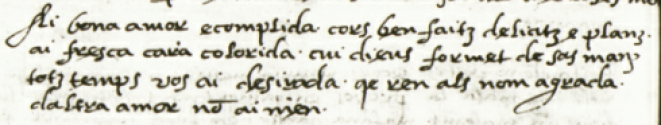 Ai bona amor ecomplida · cors ben faitz delicatz e planz ·
ai fresca cara colorida · cui dieus formet de sas manz
totz temps vos ai desirada · qe ren als nom agrada ·
daltra amor nō ai nien ·